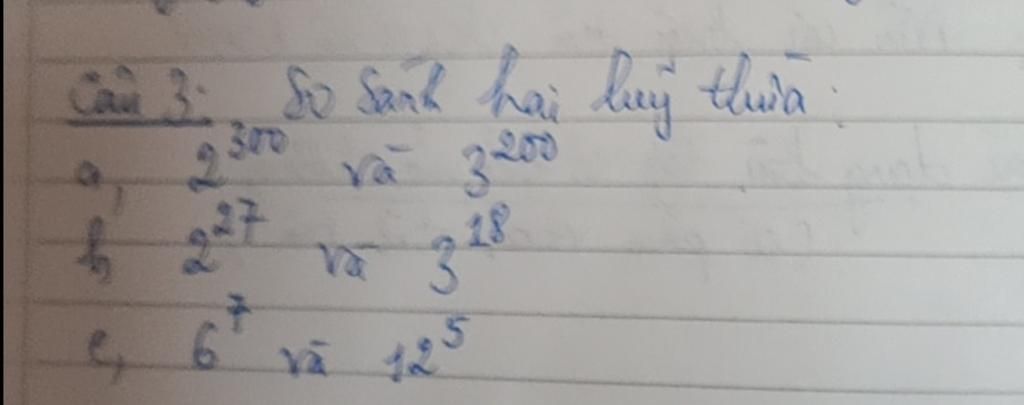 Câu 3: So sánh hai luỹ thừa:
a, 2^300 và 3^200
b, 2^27 và 3^18
c, 6^7 và 12^5